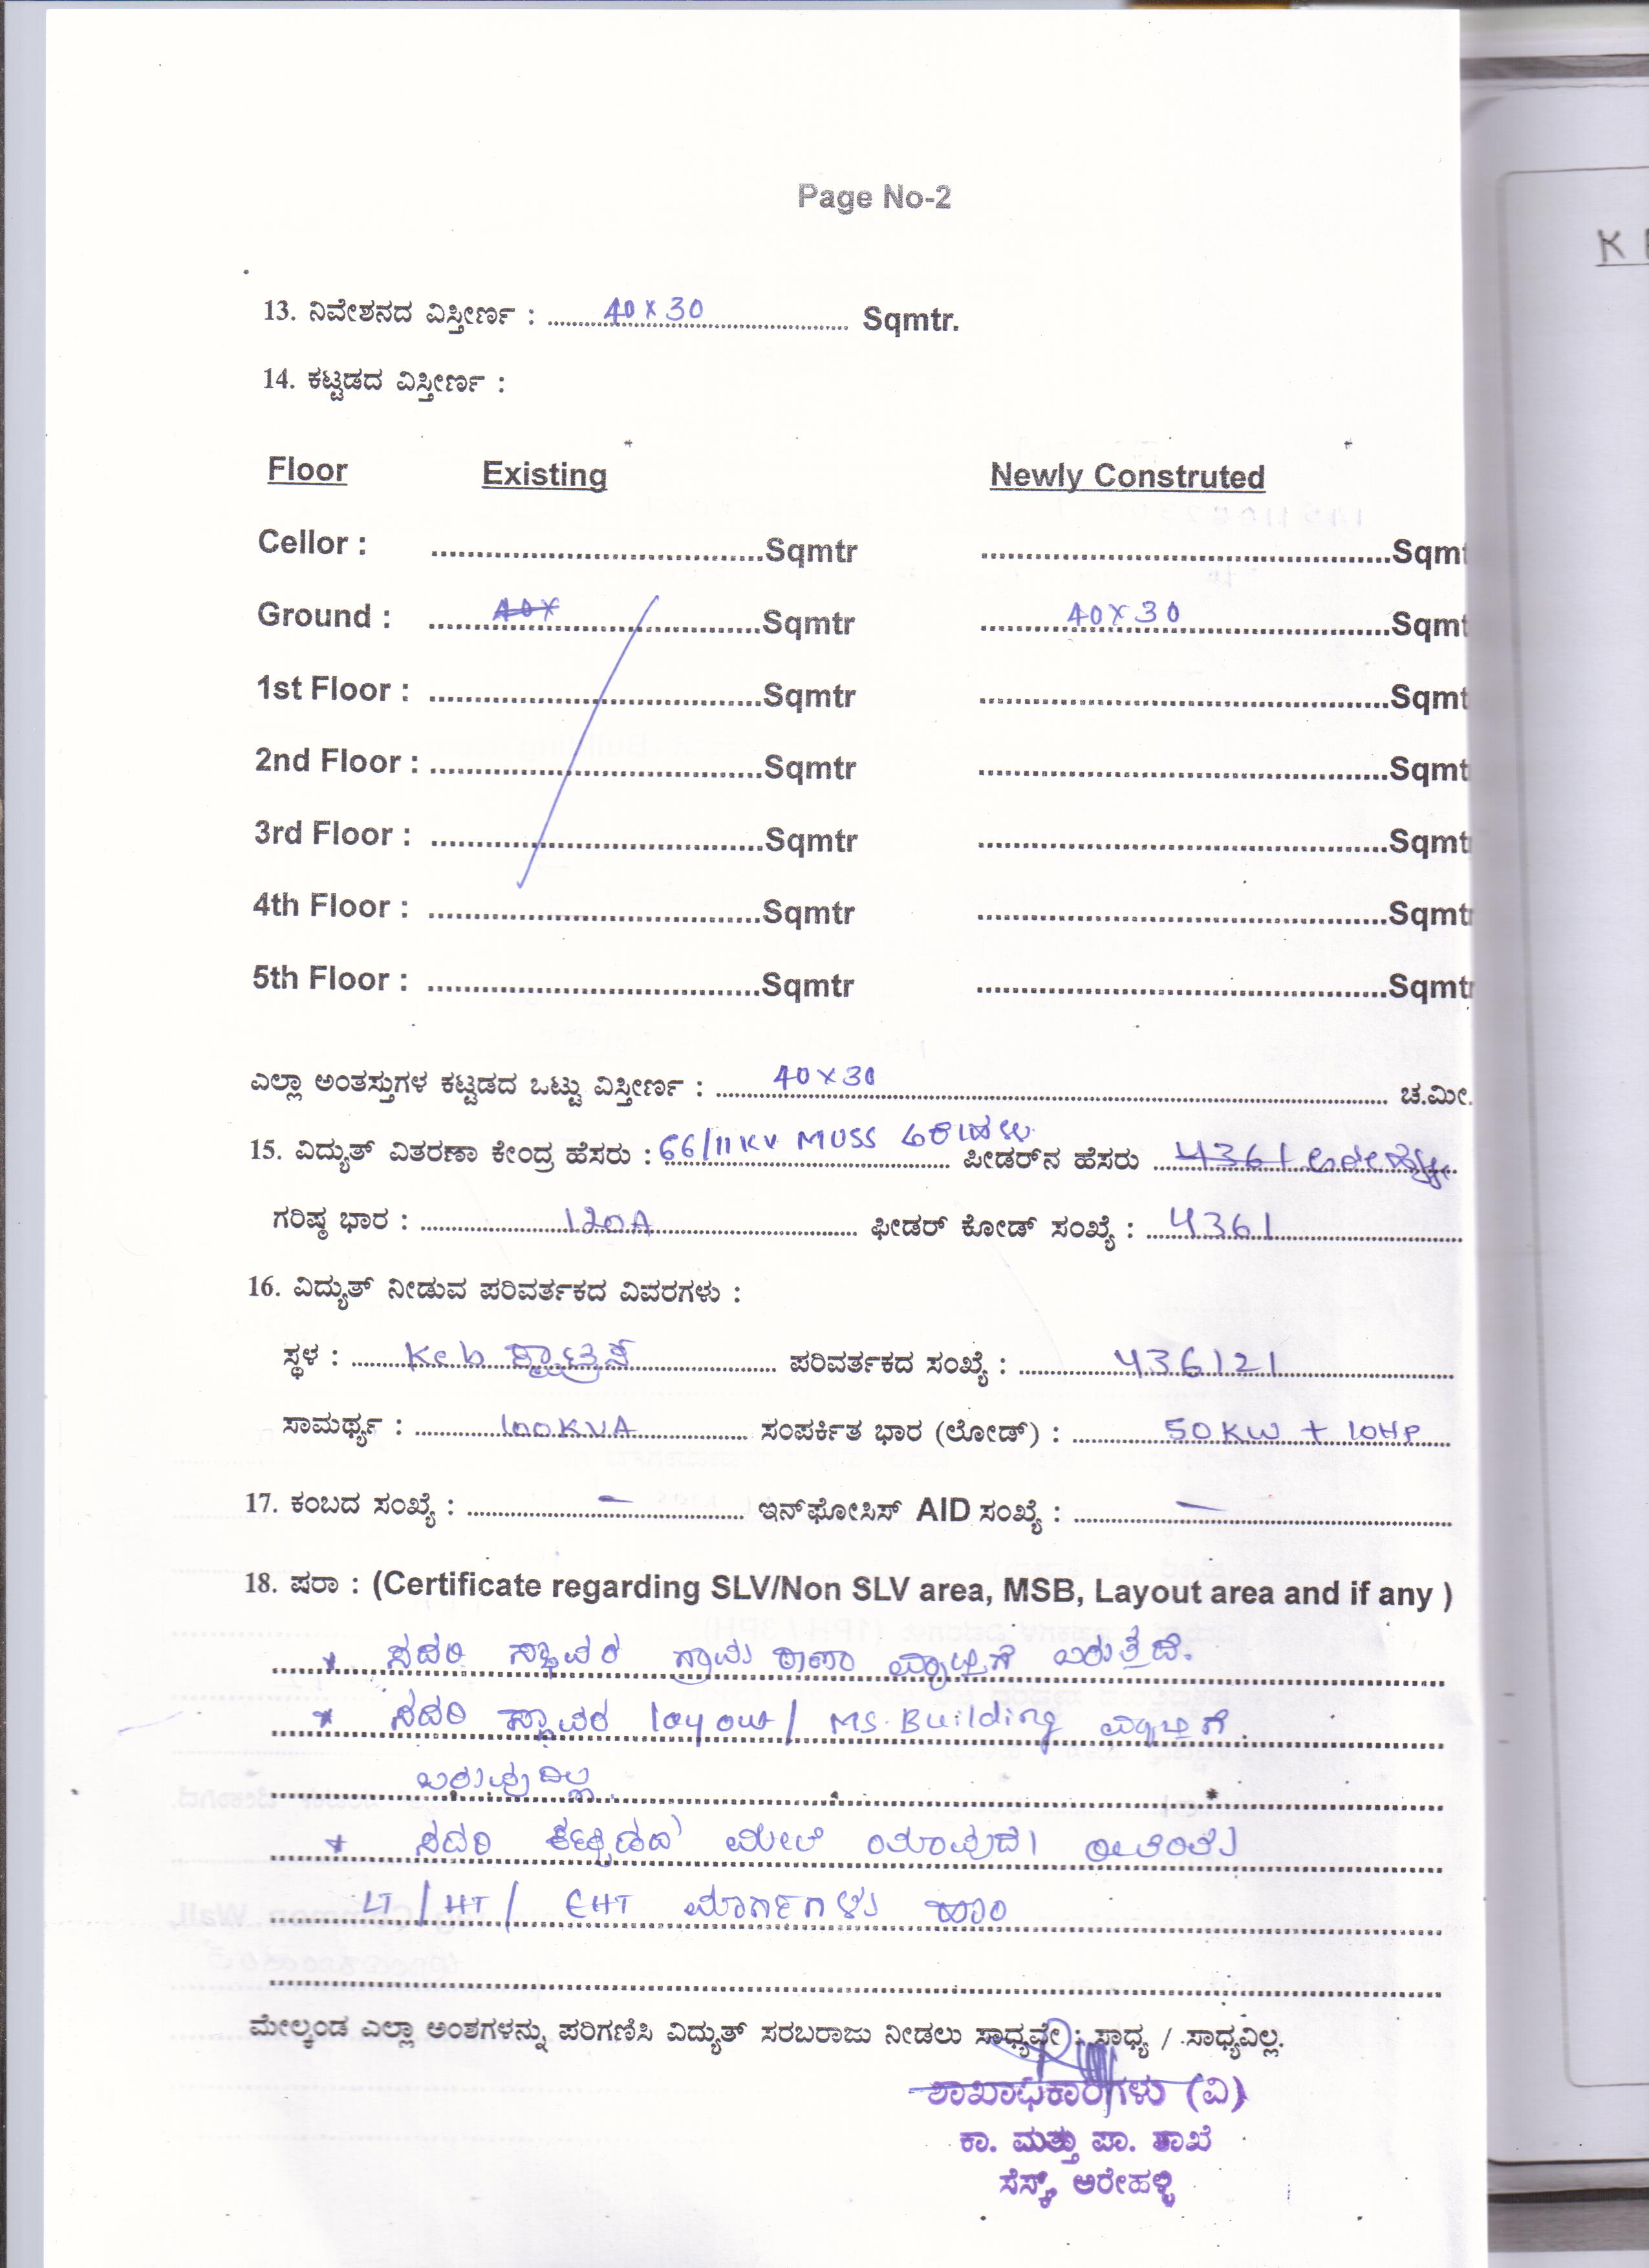 Page No-2
13. ನಿವೇಶನದ ವಿಸ್ತೀರ್ಣ : 40 x 30 Sqmtr.
14. ಕಟ್ಟಡದ ವಿಸ್ತೀರ್ಣ :
Floor Existing Newly Construted
Cellor : Sqmtr Sqmt
Ground : 40x Sqmtr 40 x 30 Sqmt
1st Floor : Sqmtr Sqmt
2nd Floor : Sqmtr Sqmt
3rd Floor : Sqmtr Sqmt
4th Floor : Sqmtr Sqmtr
5th Floor : Sqmtr Sqmtr
ಎಲ್ಲಾ ಅಂತಸ್ತುಗಳ ಕಟ್ಟಡದ ಒಟ್ಟು ವಿಸ್ತೀರ್ಣ : 40 x 30 ಚ.ಮೀ.
15. ವಿದ್ಯುತ್ ವಿತರಣಾ ಕೇಂದ್ರ ಹೆಸರು : 66/11 KV MUSS ಪೀಡರ್‌ನ ಹೆಸರು 4361
ಗರಿಷ್ಠ ಭಾರ : 120A ಫೀಡರ್ ಕೋಡ್ ಸಂಖ್ಯೆ : 4361
16. ವಿದ್ಯುತ್ ನೀಡುವ ಪರಿವರ್ತಕದ ವಿವರಗಳು :
ಸ್ಥಳ : Keb ಪರಿವರ್ತಕದ ಸಂಖ್ಯೆ : 436121
ಸಾಮರ್ಥ್ಯ : 100KVA ಸಂಪರ್ಕಿತ ಭಾರ (ಲೋಡ್) : 50 KW + 10HP
17. ಕಂಬದ ಸಂಖ್ಯೆ : – ಇನ್‌ಫೋಸಿಸ್ AID ಸಂಖ್ಯೆ : –
18. ಷರಾ : (Certificate regarding SLV/Non SLV area, MSB, Layout area and if any )
* ಸದರಿ ಸ್ಥಾವರ ಗ್ರಾಮ ಠಾಣಾ ವ್ಯಾಪ್ತಿಗೆ ಬರುತ್ತದೆ.
* ಸದರಿ ಸ್ಥಾವರ layout / MS. Building ವ್ಯಾಪ್ತಿಗೆ
ಬರುವುದಿಲ್ಲ.
* ಸದರಿ ಕಟ್ಟಡದ ಮೇಲೆ ಯಾವುದೇ
LT / HT / EHT ಮಾರ್ಗಗಳು
ಮೇಲ್ಕಂಡ ಎಲ್ಲಾ ಅಂಶಗಳನ್ನು ಪರಿಗಣಿಸಿ ವಿದ್ಯುತ್ ಸರಬರಾಜು ನೀಡಲು ಸಾಧ್ಯವೇ : ಸಾಧ್ಯ / ಸಾಧ್ಯವಿಲ್ಲ.
ಶಾಖಾಧಿಕಾರಿಗಳು (ವಿ)
ಕಾ. ಮತ್ತು ಪಾ. ಶಾಖೆ
ಸೆಸ್ಕ್, ಅರೇಹಳ್ಳಿ